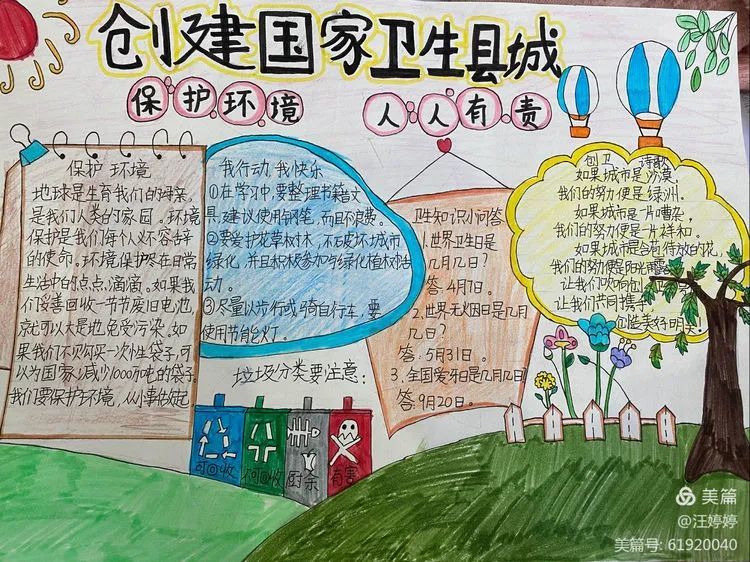 创建国家卫生县城
保护环境
人人有责
保护 环境
地球是生育我们的母亲,
是我们人类的家园。环境
保护是我们每个人义不容辞
的使命。环境保护尽在日常
生活中的点点滴滴。如果我
们妥善回收一节节废旧电池,
就可以大量地免受污染。如
果我们不购买一次性袋子,可
以为国家减少1000万吨的袋子。
我们要保护环境,从小事做起
我行动 我快乐
①在学习中要整理书籍文
具,建议使用钢笔,而且不浪费。
②要爱护花草树木,不去破坏城市
绿化,并且积极参加与绿化植树活
动。
③尽量以步行或骑自行车,要
使用节能灯。
垃圾分类要注意:
可回收
不可回收
厨余
有害
卫生知识小问答
1.世界卫生日是
几月几日?
答:4月7日。
2.世界无烟日是几月
几日?
答:5月31日。
3、全国爱牙日是几月几日?
答:9月20日。
创卫 诗歌
如果城市是沙漠,
我们的努力便是绿洲。
如果城市是一片嘈杂,
我们的努力便是一片祥和。
如果城市是含苞待放的花,
我们的努力便是阳光雨露
让我们共同携手
创造美好明天!
美篇
@汪婷婷
美篇号: 61920040